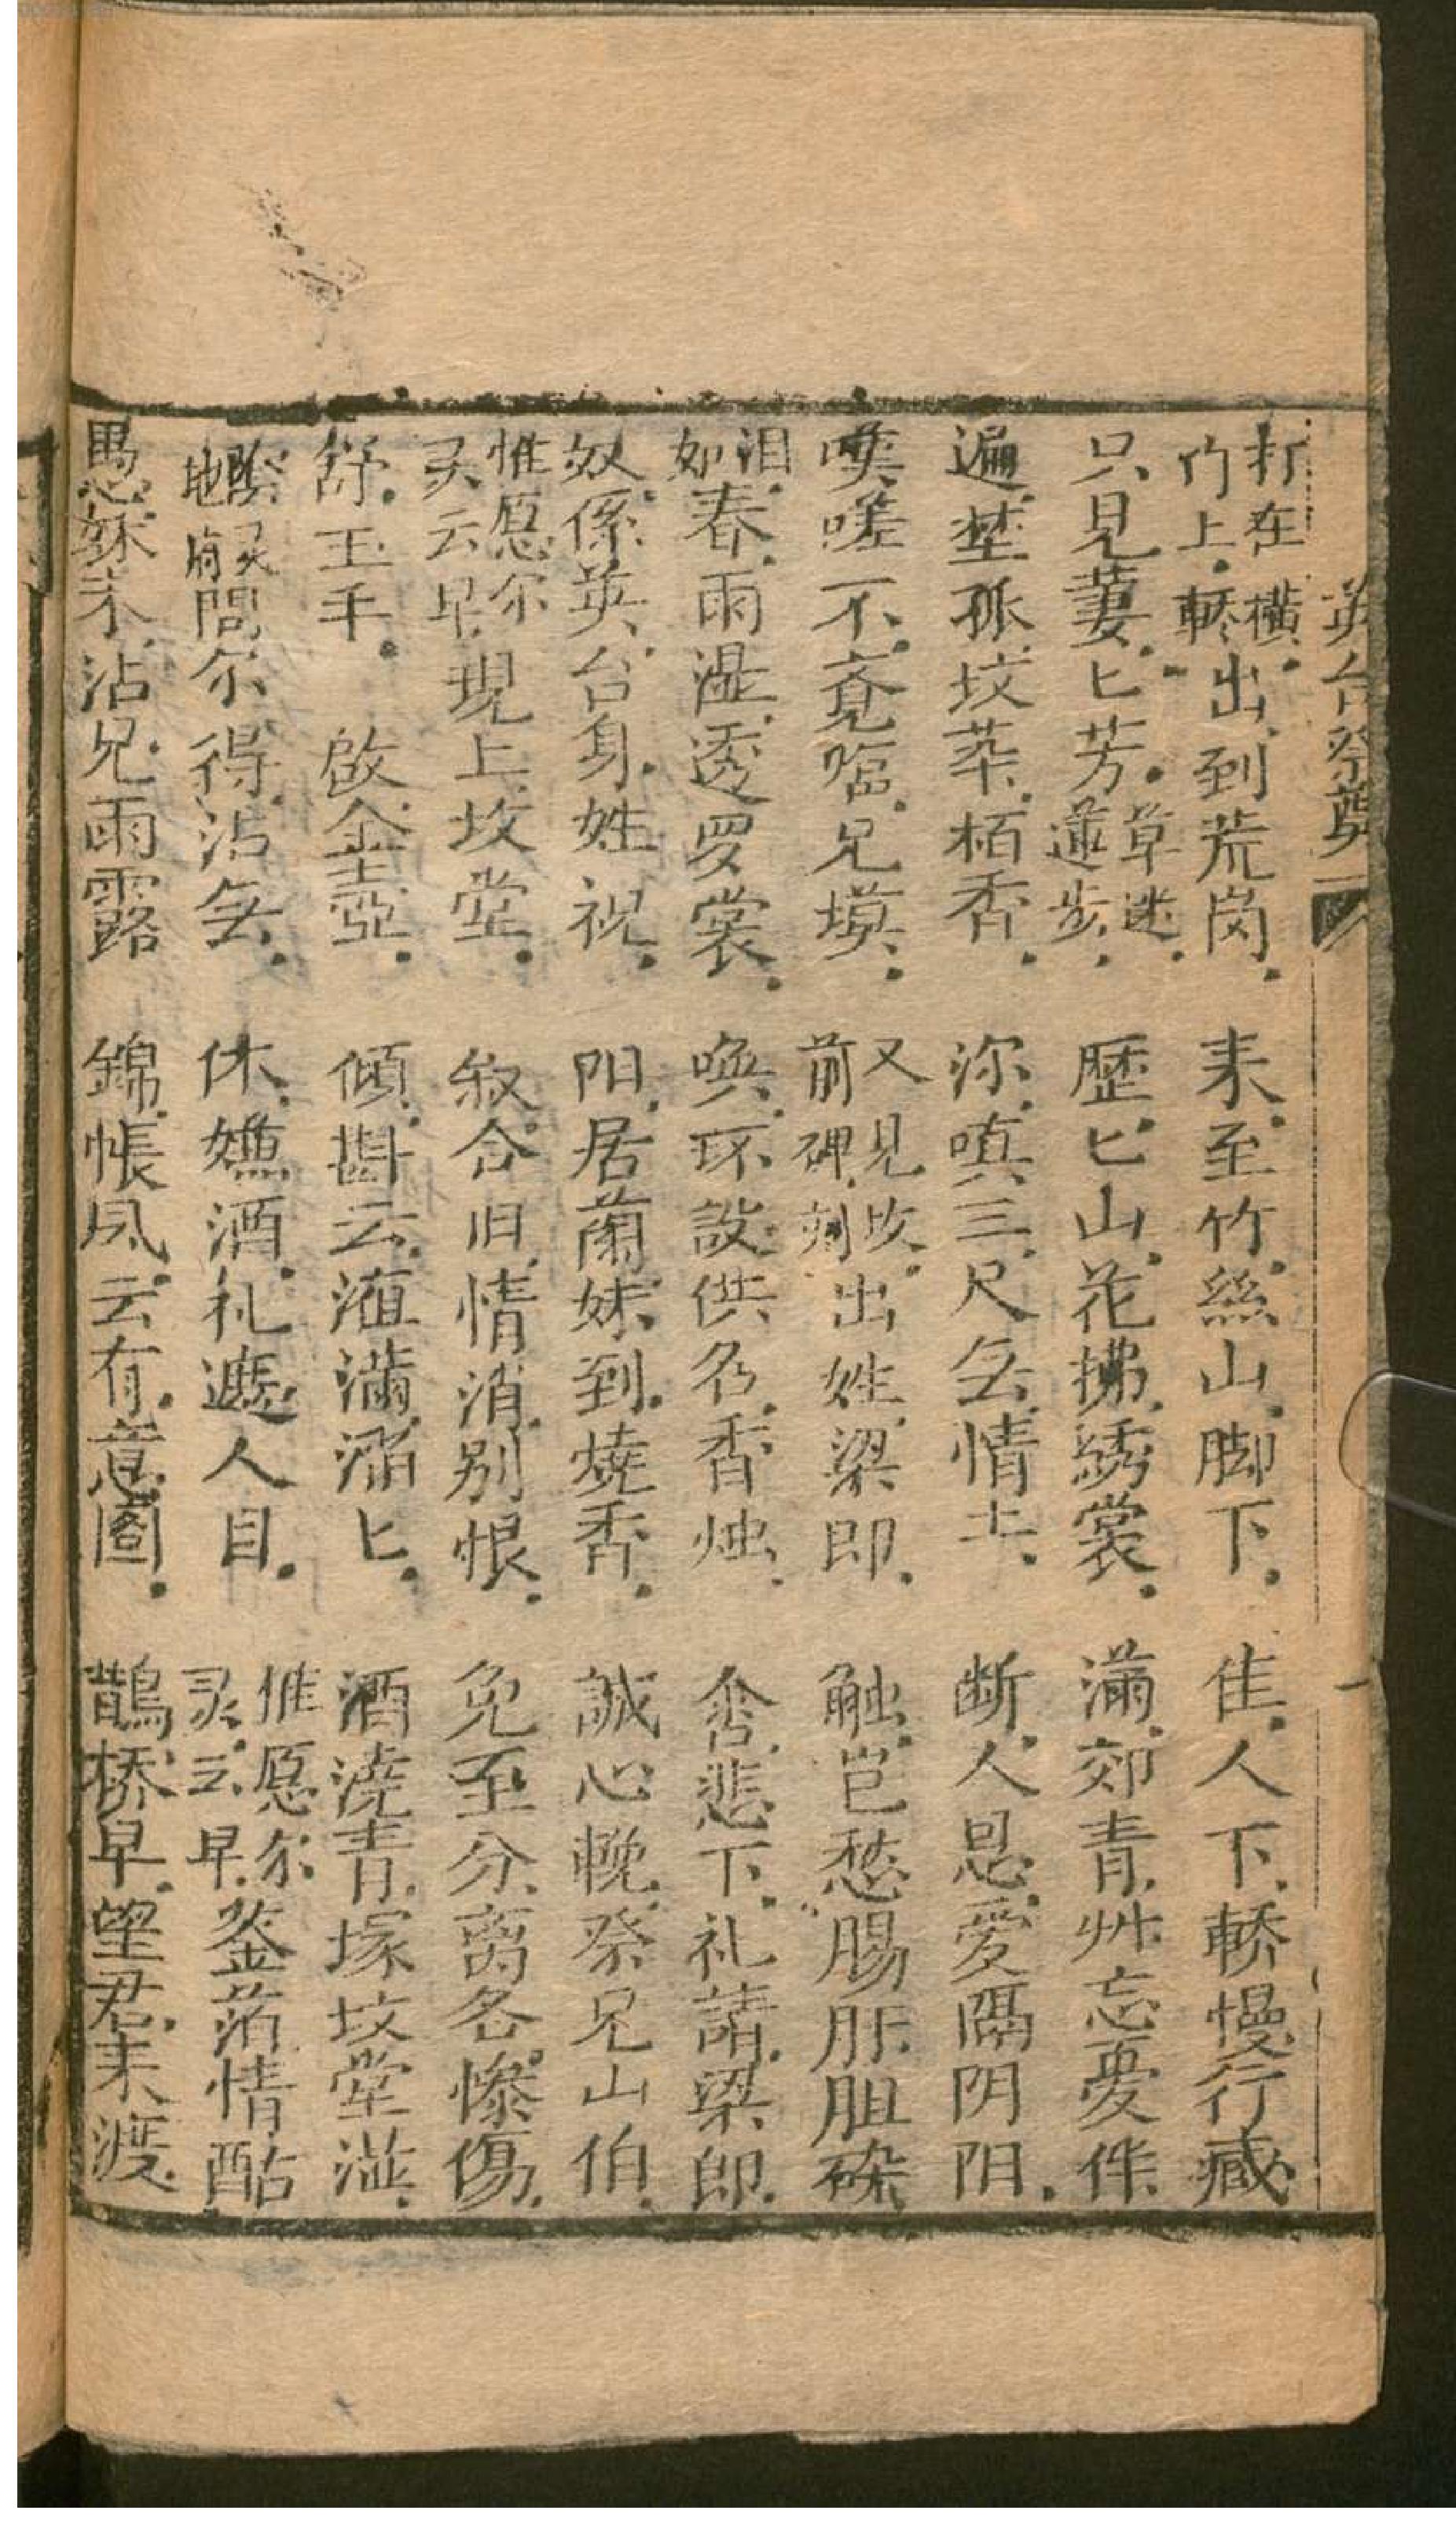 英台祭奠
打在橫竹上轎出到荒岗 来至竹絲山脚下 佳人下轎慢行藏
只見萋匕芳草迷蓮步 歷匕山花拂綉裳 滿郊青艸忘憂伴
遍埜孤坟葬栢香 你嗔三尺無情土 断人恩愛隔阴阳
嘆嗟不竟臨兄墳 又見坟前碑刻出姓梁郎 触岂愁腸肝胆碎
泪如春雨湿透罗裳 喚环設供名香烛 含悲下礼請梁郎
奴係英台身姓祝 阳居蘭妹到燒香 誠心晚祭兄山伯
惟愿尔灵云早現上坟堂 叙合旧情消别恨 免至分离各慘傷
舒玉手 啟金壺 傾斟云液滿滔匕 酒澆青塚坟堂溢
陰灵地府問尔得沾無 休嫌酒礼遮人目 惟愿尔灵云早鉴萡情酤
愚妹未沾兄雨露 錦帳风云有意圖 鵲桥早望君来渡